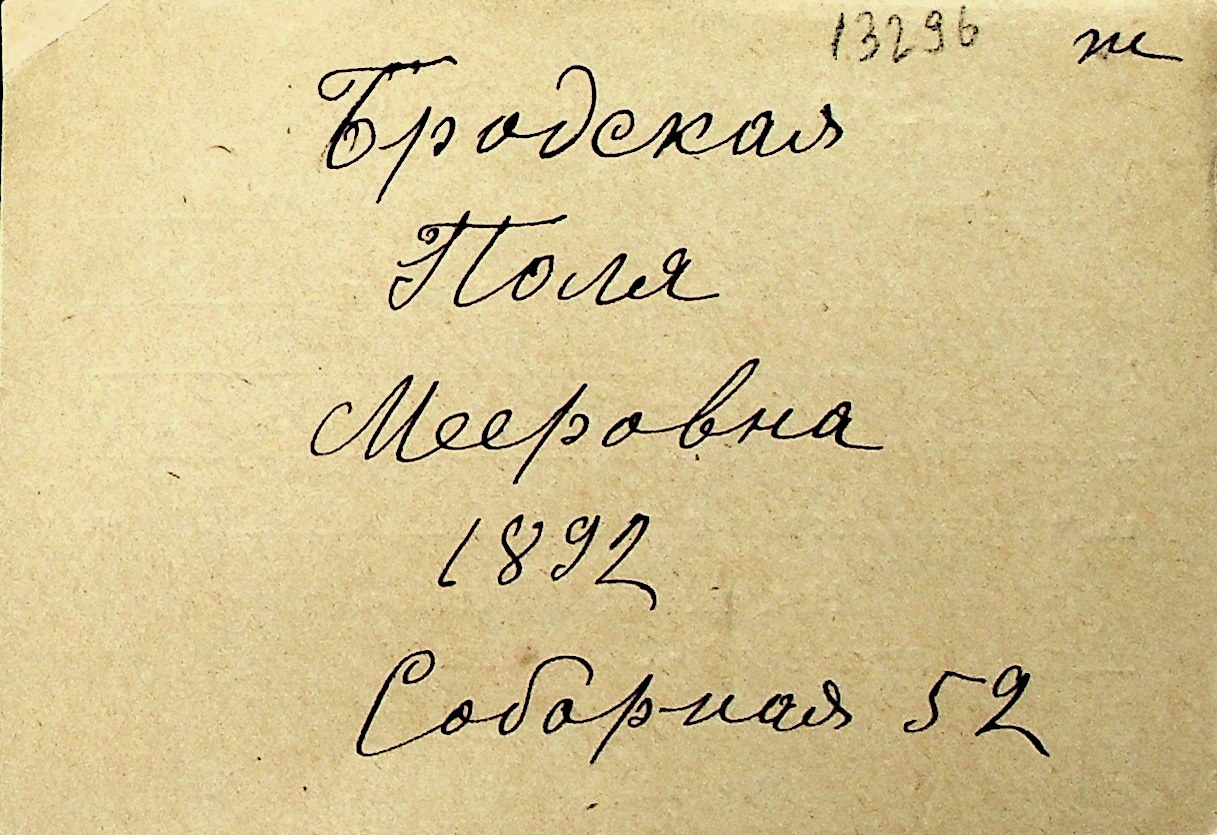 13296 т
Бродская
Поля
Мееровна
1892
Соборная 52